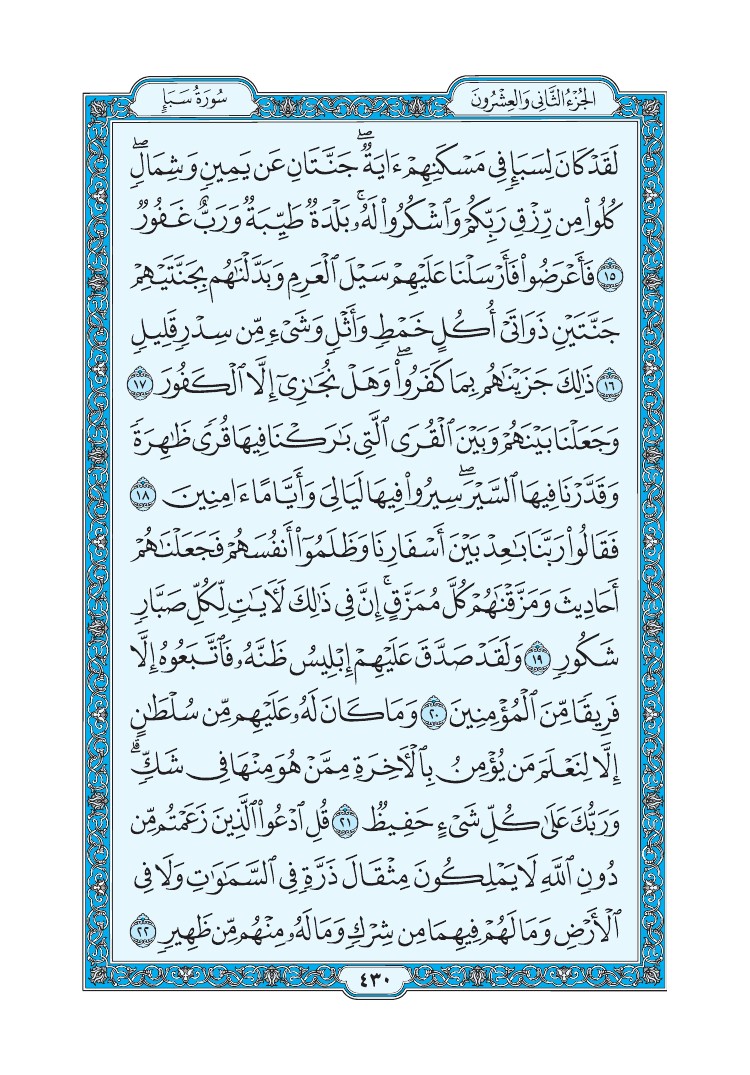 الجُزْءُ الثَّانِي وَالعِشْرُونَ
سُورَةُ سَبَإٍ
لَقَدْ كَانَ لِسَبَإٖ فِي مَسْكَنِهِمْ ءَايَةٞۖ جَنَّتَانِ عَن يَمِينٖ وَشِمَالٖۖ
كُلُواْ مِن رِّزْقِ رَبِّكُمْ وَٱشْكُرُواْ لَهُۥۚ بَلْدَةٞ طَيِّبَةٞ وَرَبٌّ غَفُورٞ
١٥ فَأَعْرَضُواْ فَأَرْسَلْنَا عَلَيْهِمْ سَيْلَ ٱلْعَرِمِ وَبَدَّلْنَٰهُم بِجَنَّتَيْهِمْ
جَنَّتَيْنِ ذَوَاتَيْ أُكُلٍ خَمْطٖ وَأَثْلٖ وَشَيْءٖ مِّن سِدْرٖ قَلِيلٖ
١٦ ذَٰلِكَ جَزَيْنَٰهُم بِمَا كَفَرُواْۖ وَهَلْ نُجَٰزِيٓ إِلَّا ٱلْكَفُورَ ١٧
وَجَعَلْنَا بَيْنَهُمْ وَبَيْنَ ٱلْقُرَى ٱلَّتِي بَٰرَكْنَا فِيهَا قُرٗى ظَٰهِرَةٗ
وَقَدَّرْنَا فِيهَا ٱلسَّيْرَۖ سِيرُواْ فِيهَا لَيَالِيَ وَأَيَّامًا ءَامِنِينَ ١٨
فَقَالُواْ رَبَّنَا بَٰعِدْ بَيْنَ أَسْفَارِنَا وَظَلَمُوٓاْ أَنفُسَهُمْ فَجَعَلْنَٰهُمْ
أَحَادِيثَ وَمَزَّقْنَٰهُمْ كُلَّ مُمَزَّقٍۚ إِنَّ فِي ذَٰلِكَ لَأٓيَٰتٖ لِّكُلِّ صَبَّارٖ
شَكُورٖ ١٩ وَلَقَدْ صَدَّقَ عَلَيْهِمْ إِبْلِيسُ ظَنَّهُۥ فَٱتَّبَعُوهُ إِلَّا
فَرِيقٗا مِّنَ ٱلْمُؤْمِنِينَ ٢٠ وَمَا كَانَ لَهُۥ عَلَيْهِم مِّن سُلْطَٰنٍ
إِلَّا لِنَعْلَمَ مَن يُؤْمِنُ بِٱلْأٓخِرَةِ مِمَّنْ هُوَ مِنْهَا فِي شَكّٖۗ
وَرَبُّكَ عَلَىٰ كُلِّ شَيْءٍ حَفِيظٞ ٢١ قُلِ ٱدْعُواْ ٱلَّذِينَ زَعَمْتُم مِّن
دُونِ ٱللَّهِ لَا يَمْلِكُونَ مِثْقَالَ ذَرَّةٖ فِي ٱلسَّمَٰوَٰتِ وَلَا فِي
ٱلْأَرْضِ وَمَا لَهُمْ فِيهِمَا مِن شِرْكٖ وَمَا لَهُۥ مِنْهُم مِّن ظَهِيرٖ ٢٢
٤٣٠